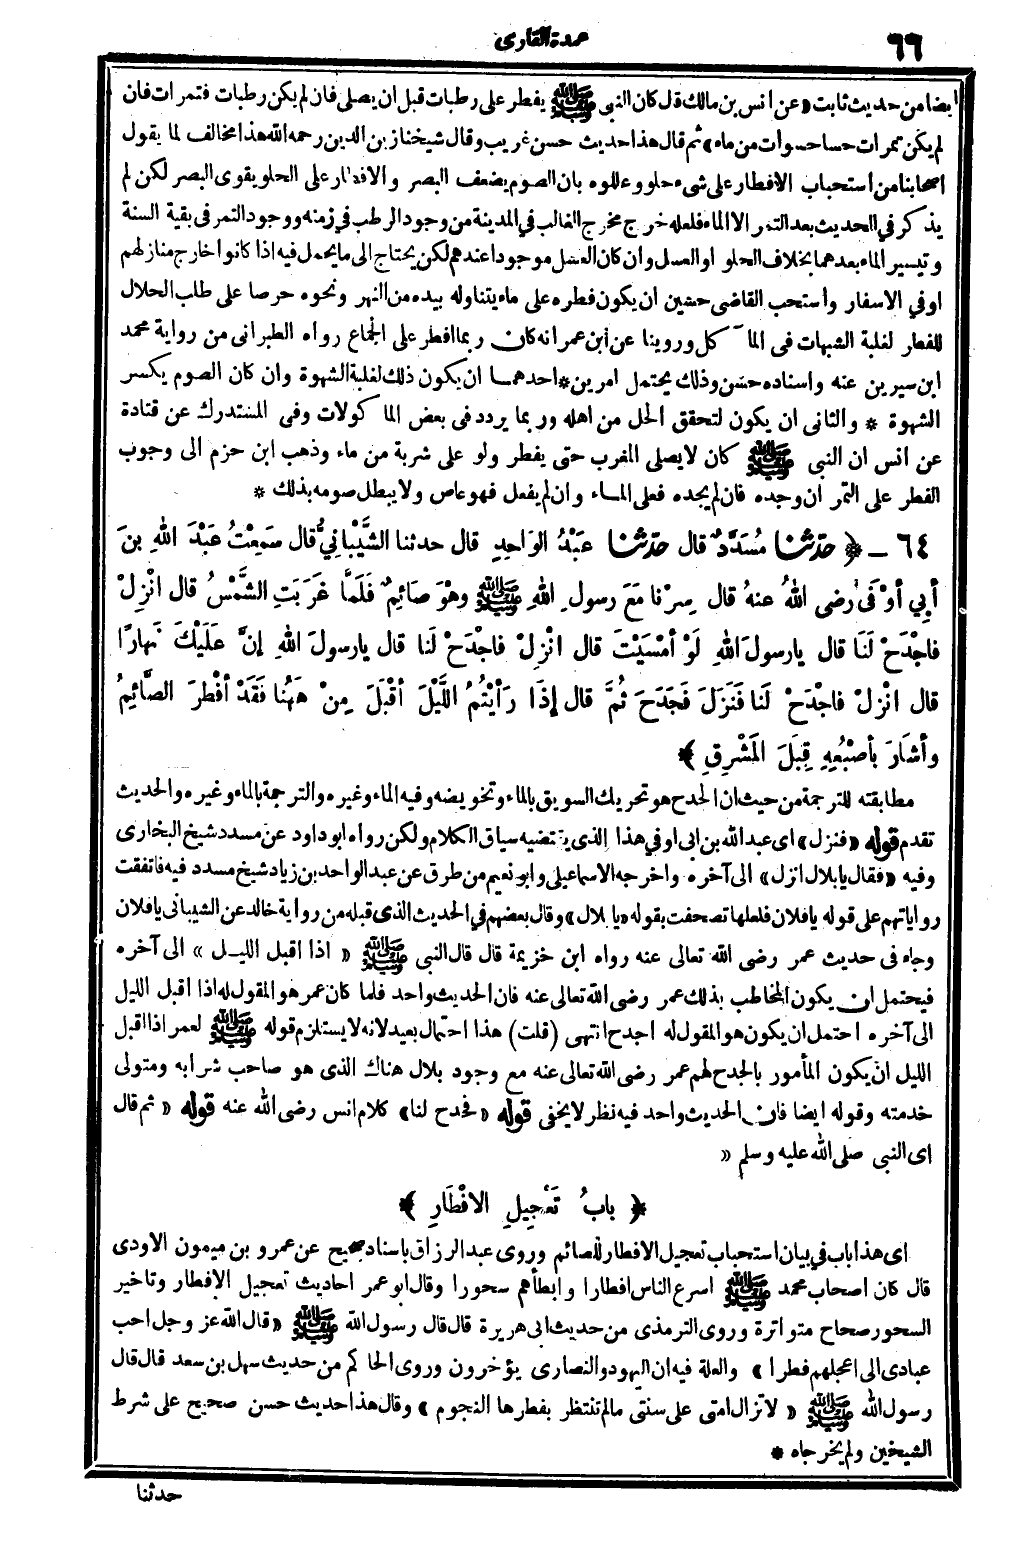 ٦٦
عمدة القارى
ايضا من حديث ثابت «عن انس بن مالك قال كان النبى ﷺ يفطر على رطبات قبل ان يصلى فان لم يكن رطبات فتمرات فان
لم يكن تمرات حسا حسوات من ماء» ثم قال هذا حديث حسن غريب وقال شيخنا زين الدين رحمه الله هذا مخالف لما يقول
اصحابنا من استحباب الافطار على شىء حلو وعللوه بان الصوم يضعف البصر والافطار على الحلو يقوى البصر لكن لم
يذكر فى الحديث بعد التمر الا الماء فلعله خرج مخرج الغالب فى المدينة من وجود الرطب فى زمنه ووجود التمر فى بقية السنة
وتيسير الماء بعدهما بخلاف الحلو او العسل وان كان العسل موجودا عندهم لكن يحتاج الى ما يحمل فيه اذا كانوا خارج منازلهم
او فى الاسفار واستحب القاضى حسين ان يكون فطره على ماء يتناوله بيده من النهر ونحوه حرصا على طلب الحلال
للفطر لغلبة الشبهات فى المآكل وروينا عن ابن عمر انه كان ربما افطر على الجماع رواه الطبرانى من رواية محمد
ابن سيرين عنه واسناده حسن وذلك يحتمل امرين * احدهما ان يكون ذلك لغلبة الشهوة وان كان الصوم يكسر
الشهوة * والثانى ان يكون لتحقق الحل من اهله وربما يردد فى بعض الماكولات وفى المستدرك عن قتادة
عن انس ان النبى ﷺ كان لا يصلى المغرب حتى يفطر ولو على شربة من ماء وذهب ابن حزم الى وجوب
الفطر على التمر ان وجده فان لم يجده فعلى الماء وان لم يفعل فهو عاص ولا يبطل صومه بذلك *
٦٤ – ﴿ حدثنا مُسَدَّدٌ قال حدثنا عَبْدُ الوَاحِدِ قال حدثنا الشَّيْبَانِيُّ قال سَمِعْتُ عَبْدَ اللهِ بنَ
أبِي أوْفَى رضى اللهُ عنهُ قال سِرْنا مَعَ رسولِ اللهِ ﷺ وهْوَ صَائِمٌ فَلَمَّا غَرَبَتِ الشَّمْسُ قال انْزِلْ
فاجْدَحْ لَنَا قال يارسولَ اللهِ لَوْ أمْسَيْتَ قال انْزِلْ فاجْدَحْ لَنا قال يارسولَ اللهِ إنَّ عَلَيْكَ نَهارًا
قال انْزِلْ فاجْدَحْ لَنا فَنَزَلَ فَجَدَحَ ثُمَّ قال إذَا رَأيْتُمُ اللَّيْلَ أقْبَلَ مِنْ هَهُنا فَقَدْ أفْطرَ الصَّائِمُ
وأشَارَ بأصْبُعِهِ قِبَلَ المَشْرِقِ ﴾
مطابقته للترجمة من حيث ان الجدح هو تحريك السويق بالماء وتخويضه وفيه الماء وغيره والترجمة بالماء وغيره والحديث
تقدم قوله «فنزل» اى عبد الله بن ابى اوفى هذا الذى يقتضيه سياق الكلام ولكن رواه ابو داود عن مسدد شيخ البخارى
وفيه «فقال يا بلال انزل» الى آخره واخرجه الاسماعيلى وابو نعيم من طرق عن عبد الواحد بن زياد شيخ مسدد فيه فاتفقت
رواياتهم على قوله يا فلان فلعلها تصحفت بقوله «يا بلال» وقال بعضهم فى الحديث الذى قبله من رواية خالد عن الشيبانى يافلان
وجاء فى حديث عمر رضى الله تعالى عنه رواه ابن خزيمة قال قال النبى ﷺ « اذا اقبل الليل » الى آخره
فيحتمل ان يكون المخاطب بذلك عمر رضى الله تعالى عنه فان الحديث واحد فلما كان عمر هو المقول له اذا اقبل الليل
الى آخره احتمل ان يكون هو المقول له اجدح انتهى (قلت) هذا احتمال بعيد لانه لا يستلزم قوله ﷺ لعمر اذا اقبل
الليل ان يكون المأمور بالجدح لهم عمر رضى الله تعالى عنه مع وجود بلال هناك الذى هو صاحب شرابه ومتولى
خدمته وقوله ايضا فان الحديث واحد فيه نظر لا يخفى قوله « فجدح لنا» كلام انس رضى الله عنه قوله « ثم قال
اى النبى صلى الله عليه وسلم «
﴿ بابُ تَعْجِيلِ الافْطَارِ ﴾
اى هذا باب فى بيان استحباب تعجيل الافطار للصائم وروى عبد الرزاق باسناد صحيح عن عمرو بن ميمون الاودى
قال كان اصحاب محمد ﷺ اسرع الناس افطارا وابطأهم سحورا وقال ابو عمر احاديث تعجيل الافطار وتاخير
السحور صحاح متواترة وروى الترمذى من حديث ابى هريرة قال قال رسول الله ﷺ «قال الله عز وجل احب
عبادى الى اعجلهم فطرا» والعلة فيه ان اليهود والنصارى يؤخرون وروى الحاكم من حديث سهل بن سعد قال قال
رسول الله ﷺ « لا تزال امتى على سنتى ما لم تنتظر بفطرها النجوم » وقال هذا حديث حسن صحيح على شرط
الشيخين ولم يخرجاه *
حدثنا